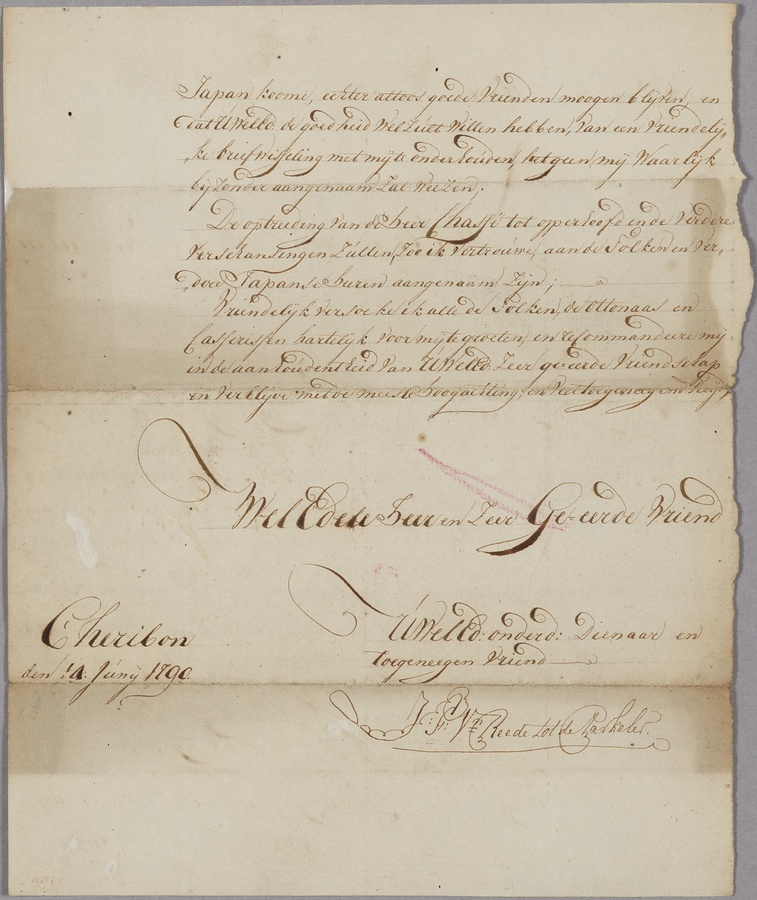 Japan koome, echter altoos goede Vrienden moogen blijven, en
dat UWelEd. de goedheid Wel zult Willen hebben, Van een Vriendelij„
„ke briefwisseling met mij te onderhouden, het geen mij Waarlijk
bijzonder aangenaam zal Weezen.
De optreeding van de Heer Chassé tot opperhoofd en de verdere
Verschansingen zullen, zoo ik vertrouwe, aan de Tolken en ver„
„dere Japanse heren aangenaam zijn;
Vriendelijk versoeke ik alle de Tolken, de Ottonaas en
Casserissen hartelijk voor mij te groeten, en recommandeere mij
in de aanhoudentheid van UWelEd. Zeer geëerde Vriendschap
en verblijve met de meeste hoogachting, en veel toegeneegend
WelEdele Heer en Zeer Geëerde Vriend
UWelEd: onderd: Dienaar en
toegeneegen Vriend
Cheribon
den 14 Junij 1790
J: F: Br Vn Reede tot de Parkeler.